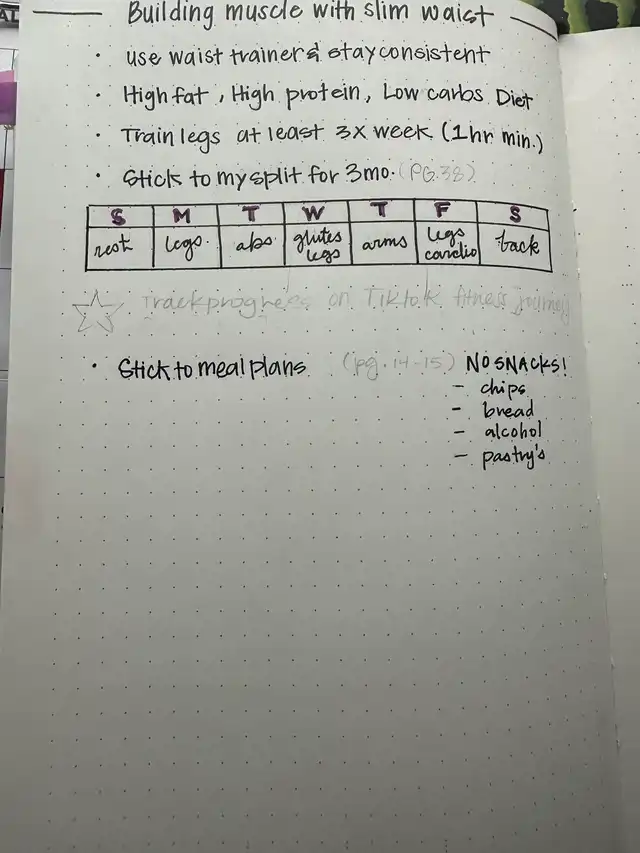 AL
Building muscle with slim waist
· use waist trainer & stay consistent
· High fat, High protein, Low carbs Diet
· Train legs at least 3x week (1hr min.)
· Stick to my split for 3mo. (PG.38)
S M T W T F S
rest legs. abs. glutes legs arms legs cardio back
Track progress on TikTok fitness journey
· Stick to meal plans (pg. 14-15) NO SNACKS!
- chips
- bread
- alcohol
- pastry's